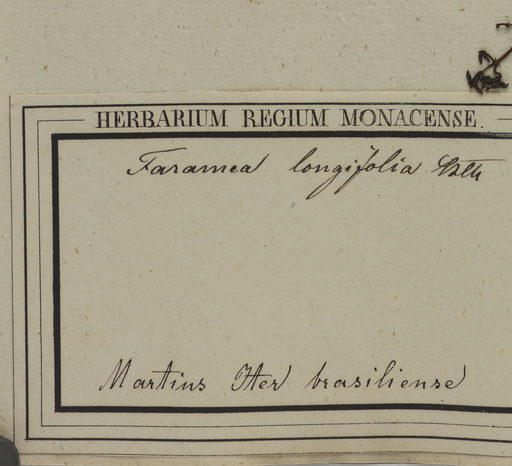 HERBARIUM REGIUM MONACENSE.
Faramea longifolia Bth
Martius Iter brasiliense